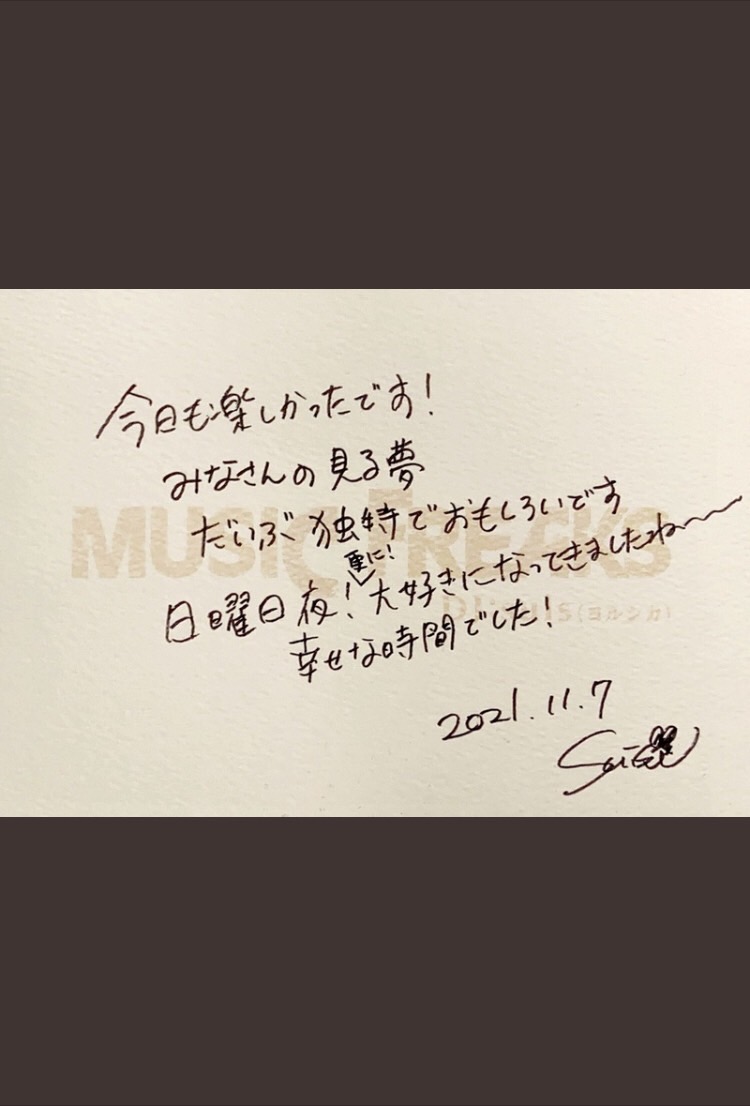 今日も楽しかったです!
みなさんの見る夢
だいぶ独特でおもしろいです
更に!
日曜日夜!大好きになってきましたね〜
幸せな時間でした!
2021.11.7
MUSIC FREAKS
(ヨルシカ)